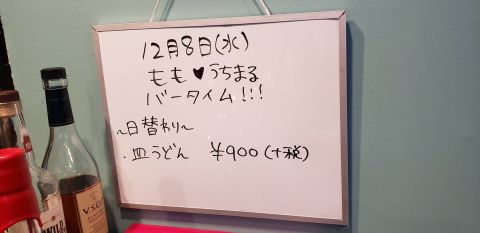 12月8日(水)
もも♥うちまる
バータイム!!!
~日替わり~
・皿うどん ¥900(+税)
V.S.O.P